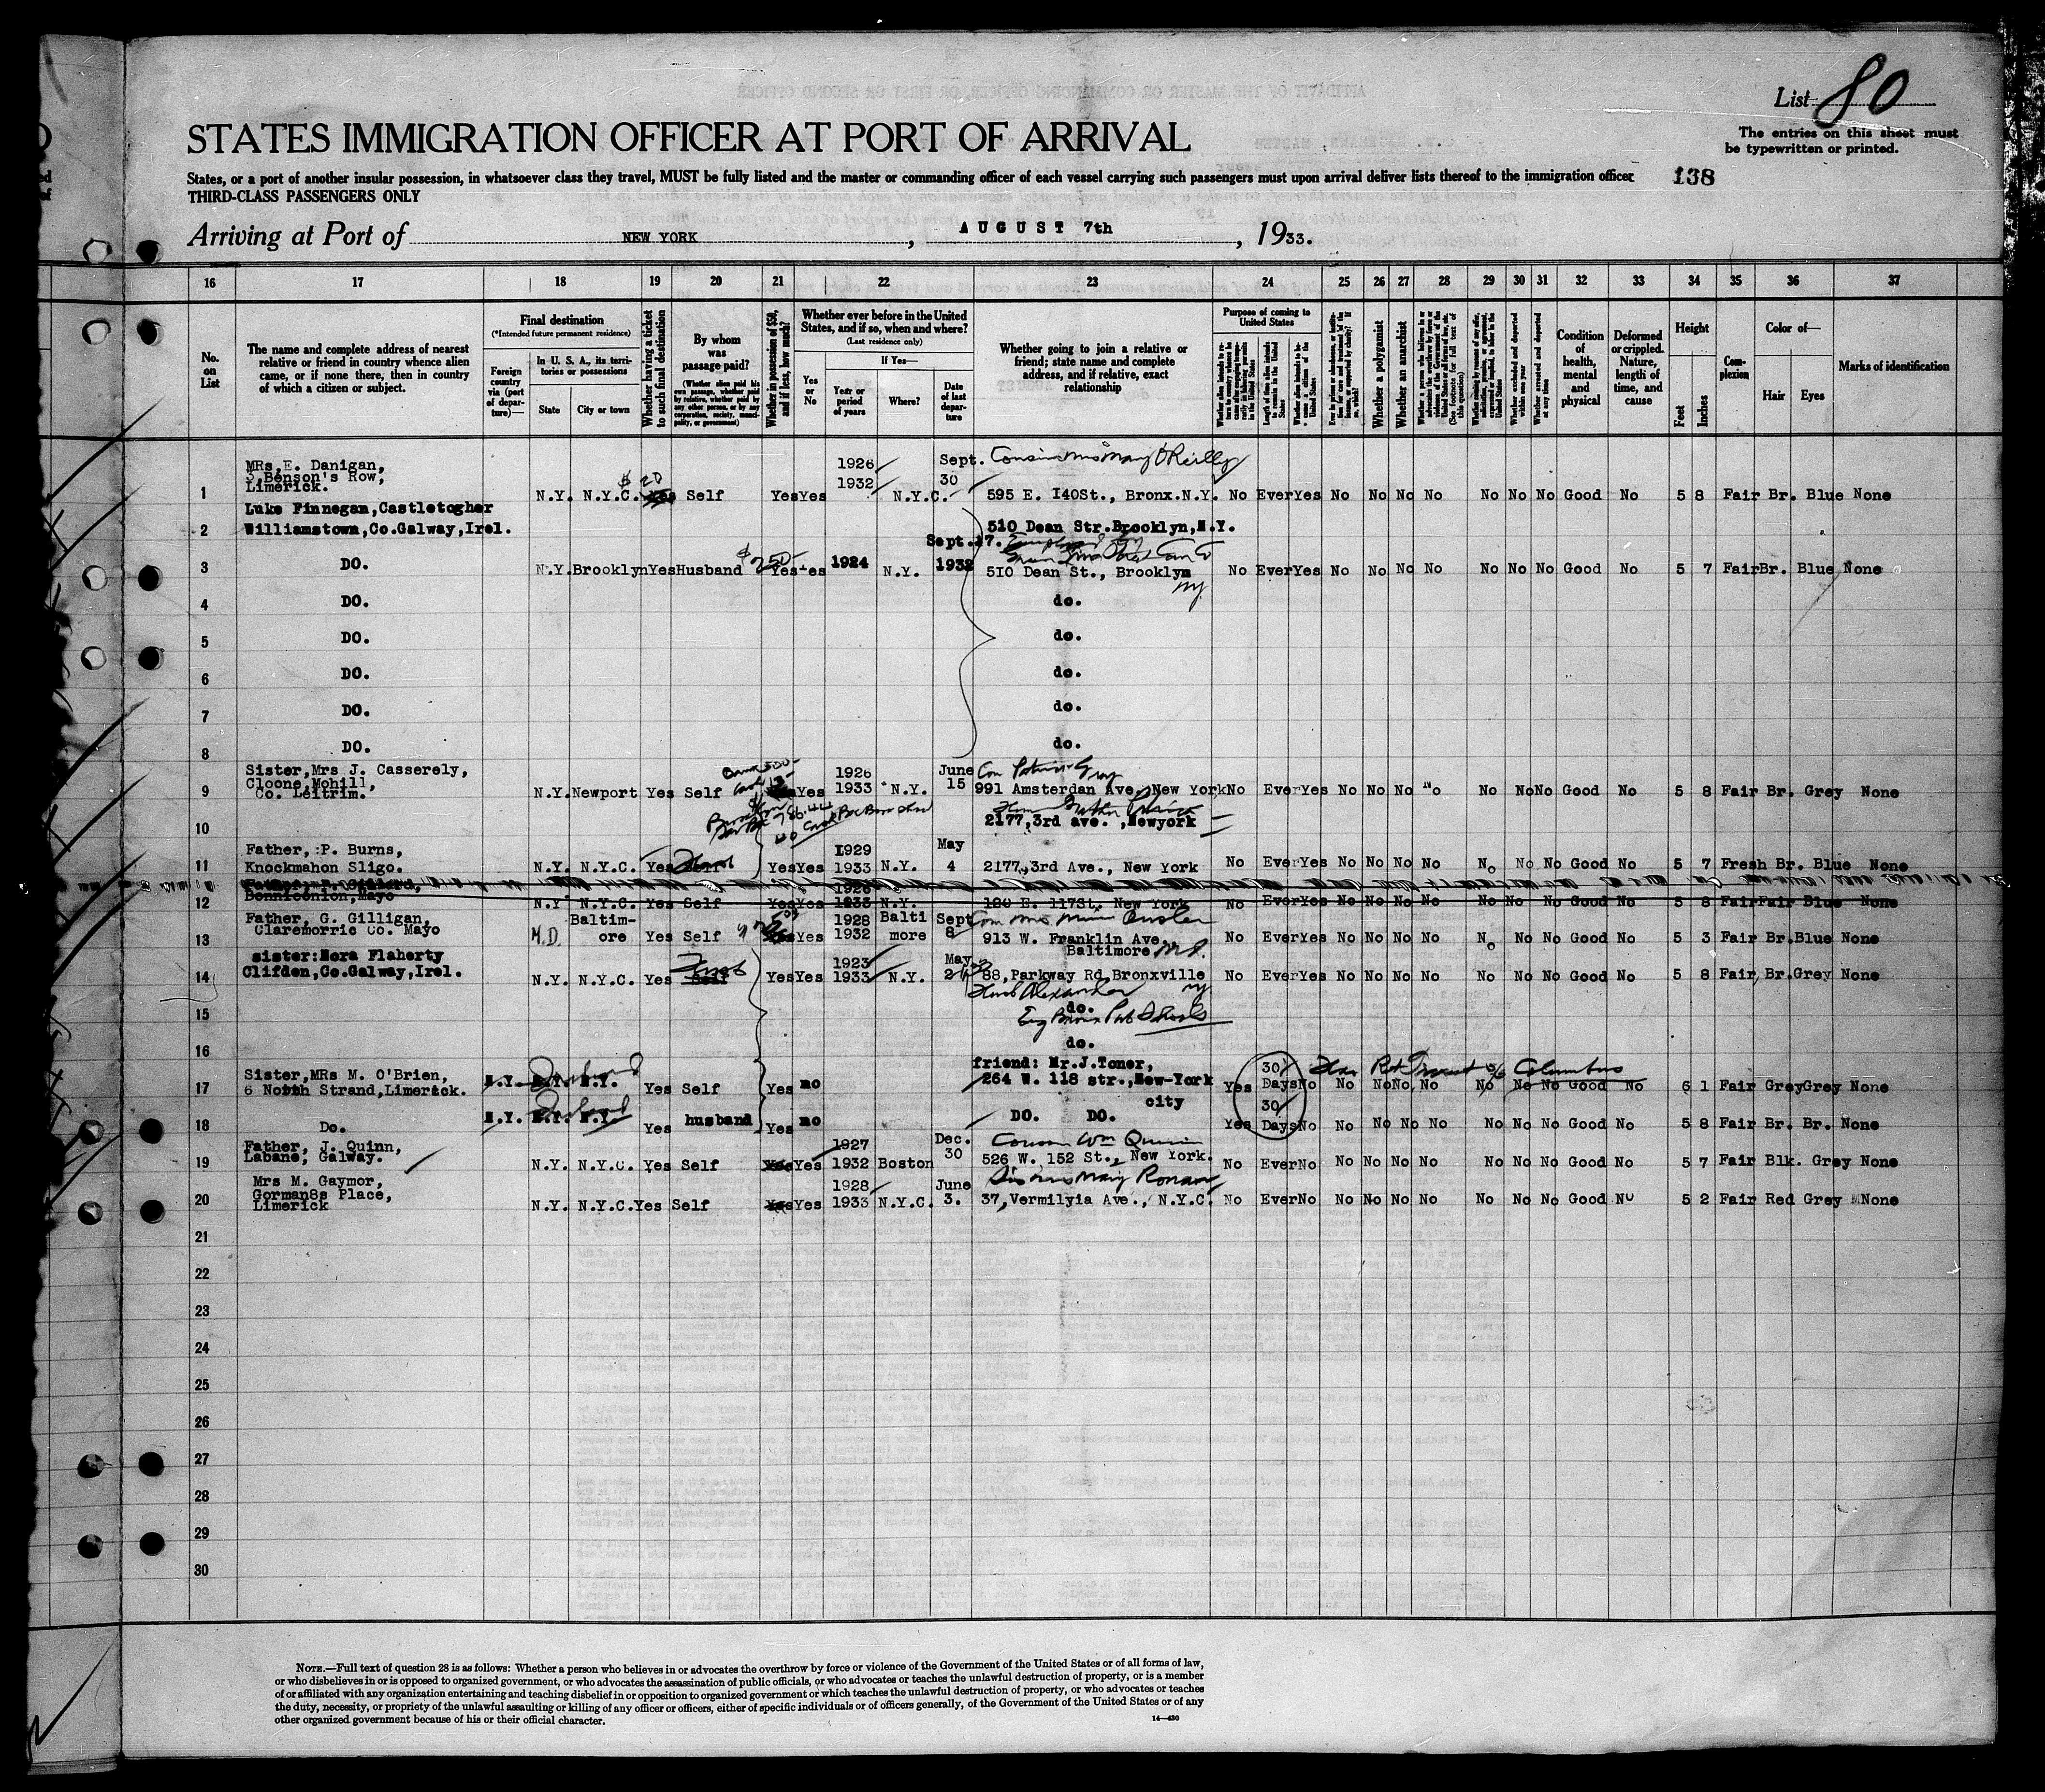 List 80
STATES IMMIGRATION OFFICER AT PORT OF ARRIVAL
The entries on this sheet must
be typewritten or printed.
States, or a port of another insular possession, in whatsoever class they travel, MUST be fully listed and the master or commanding officer of each vessel carrying such passengers must upon arrival deliver lists thereof to the immigration officer
138
THIRD-CLASS PASSENGERS ONLY
Arriving at Port of NEW YORK, AUGUST 7th, 1933.
16 17 18 19 20 21 22 23 24 25 26 27 28 29 30 31 32 33 34 35 36 37
No. on List
The name and complete address of nearest relative or friend in country whence alien came, or if none there, then in country of which a citizen or subject.
Final destination
(*Intended future permanent residence)
Foreign country via (port of departure)—
In U. S. A., its territories or possessions
State
City or town
Whether having a ticket to such final destination
By whom was passage paid?
(Whether alien paid his own passage, whether paid by relative, whether paid by any other person, or by any corporation, society, municipality, or government)
Whether in possession of $50, and if less, how much?
Whether ever before in the United States, and if so, when and where?
(Last residence only)
Yes or No
If Yes—
Year or period of years
Where?
Date of last departure
Whether going to join a relative or friend; state name and complete address, and if relative, exact relationship
Purpose of coming to United States
Length of time alien intends to remain in the United States
Whether alien intends to become a citizen of the United States
Whether a polygamist
Whether an anarchist
Condition of health, mental and physical
Deformed or crippled. Nature, length of time, and cause
Height
Feet
Inches
Complexion
Color of—
Hair
Eyes
Marks of identification
1 MRs,E. Danigan,
3,Benson's Row,
Limerick.
N.Y. N.Y.C. $20 Yes Self Yes Yes 1926 1932 N.Y.C. Sept. 30 Cousin Mrs Mary O'Reilly
595 E. I40St., Bronx.N.Y. No Ever Yes No No No No No No No Good No 5 8 Fair Br. Blue None
2 Luke Finnegan,Castletogher
Williamstown,Co.Galway,Irel. 510 Dean Str.Brooklyn,N.Y.
3 DO. N.Y. Brooklyn Yes Husband $250 Yes -es 1924 N.Y. Sept.17. 1932
5I0 Dean St., Brooklyn No Ever Yes No No No No No No No Good No 5 7 Fair Br. Blue None
NY.
4 DO. do.
5 DO. do.
6 DO. do.
7 DO. do.
8 DO. do.
9 Sister,Mrs J. Casserely,
Cloone,Mohill,
Co. Leitrim.
N.Y. Newport Yes Self Yes 1926 1933 N.Y. June 15
991 Amsterdan Ave, New York No Ever Yes No No No No No No No Good No 5 8 Fair Br. Grey None
10 2177,3rd ave. ,Newyork
11 Father, P. Burns,
Knockmahon Sligo.
N.Y. N.Y.C. Yes Self Yes Yes 1929 1933 N.Y. May 4 2177,3rd Ave., New York No Ever Yes No No No No No No No Good No 5 7 Fresh Br. Blue None
12 N.Y. N.Y.C. Yes Self Yes Yes 1933 N.Y. 120 E. 117St. New York No Ever Yes No No No No No No No Good No 5 8 Fair Fair Blue None
13 Father, G. Gilligan,
Claremorric Co. Mayo
M.D. Baltim-
ore Yes Self Yes 1928 1932 Balti
more Sept 8
913 W. Franklin Ave.
Baltimore Md. No Ever Yes No No No No No No No Good No 5 3 Fair Br. Blue None
14 sister:Nora Flaherty
Clifden,Co.Galway,Irel.
N.Y. N.Y.C. Yes Self Yes Yes 1923 1933 N.Y. May
88,Parkway Rd Bronxville NY No Ever Yes No No No No No No No Good No 5 8 Fair, Br. Grey None
Husb Alexander
15 do.
16 do.
17 Sister,MRs M. O'Brien,
6 North Strand,Limerick.
N.Y. N.Y. N.Y. Yes Self Yes no friend: Mr.J.Toner,
264 W. 118 str.,New-York
city
Yes 30 Days No No No No No No No No Good No 6 1 Fair Grey Grey None
Columbus
18 Do. N.Y. N.Y. N.Y. Yes husband Yes no DO. DO. Yes 30 Days No No No No No No No No Good No 5 8 Fair Br. Br. None
19 Father, J. Quinn,
Labane, Galway.
N.Y. N.Y.C. Yes Self Yes Yes 1927 1932 Boston Dec. 30 Cousin Wm Quinn
526 W. 152 St., New York. No Ever No No No No No No No No Good No 5 7 Fair Blk. Grey None
20 Mrs M. Gaymor,
Gorman8s Place,
Limerick
N.Y. N.Y.C. Yes Self Yes Yes 1928 1933 N.Y.C. June 3.
37,Vermilyia Ave., N.Y.C. No Ever No No No No No No No No Good No 5 2 Fair Red Grey None
21
22
23
24
25
26
27
28
29
30
NOTE.—Full text of question 28 is as follows: Whether a person who believes in or advocates the overthrow by force or violence of the Government of the United States or of all forms of law,
or who disbelieves in or is opposed to organized government, or who advocates the assassination of public officials, or who advocates or teaches the unlawful destruction of property, or is a member
of or affiliated with any organization entertaining and teaching disbelief in or opposition to organized government or which teaches the unlawful destruction of property, or who advocates or teaches
the duty, necessity, or propriety of the unlawful assaulting or killing of any officer or officers, either of specific individuals or of officers generally, of the Government of the United States or of any
other organized government because of his or their official character.
14—430